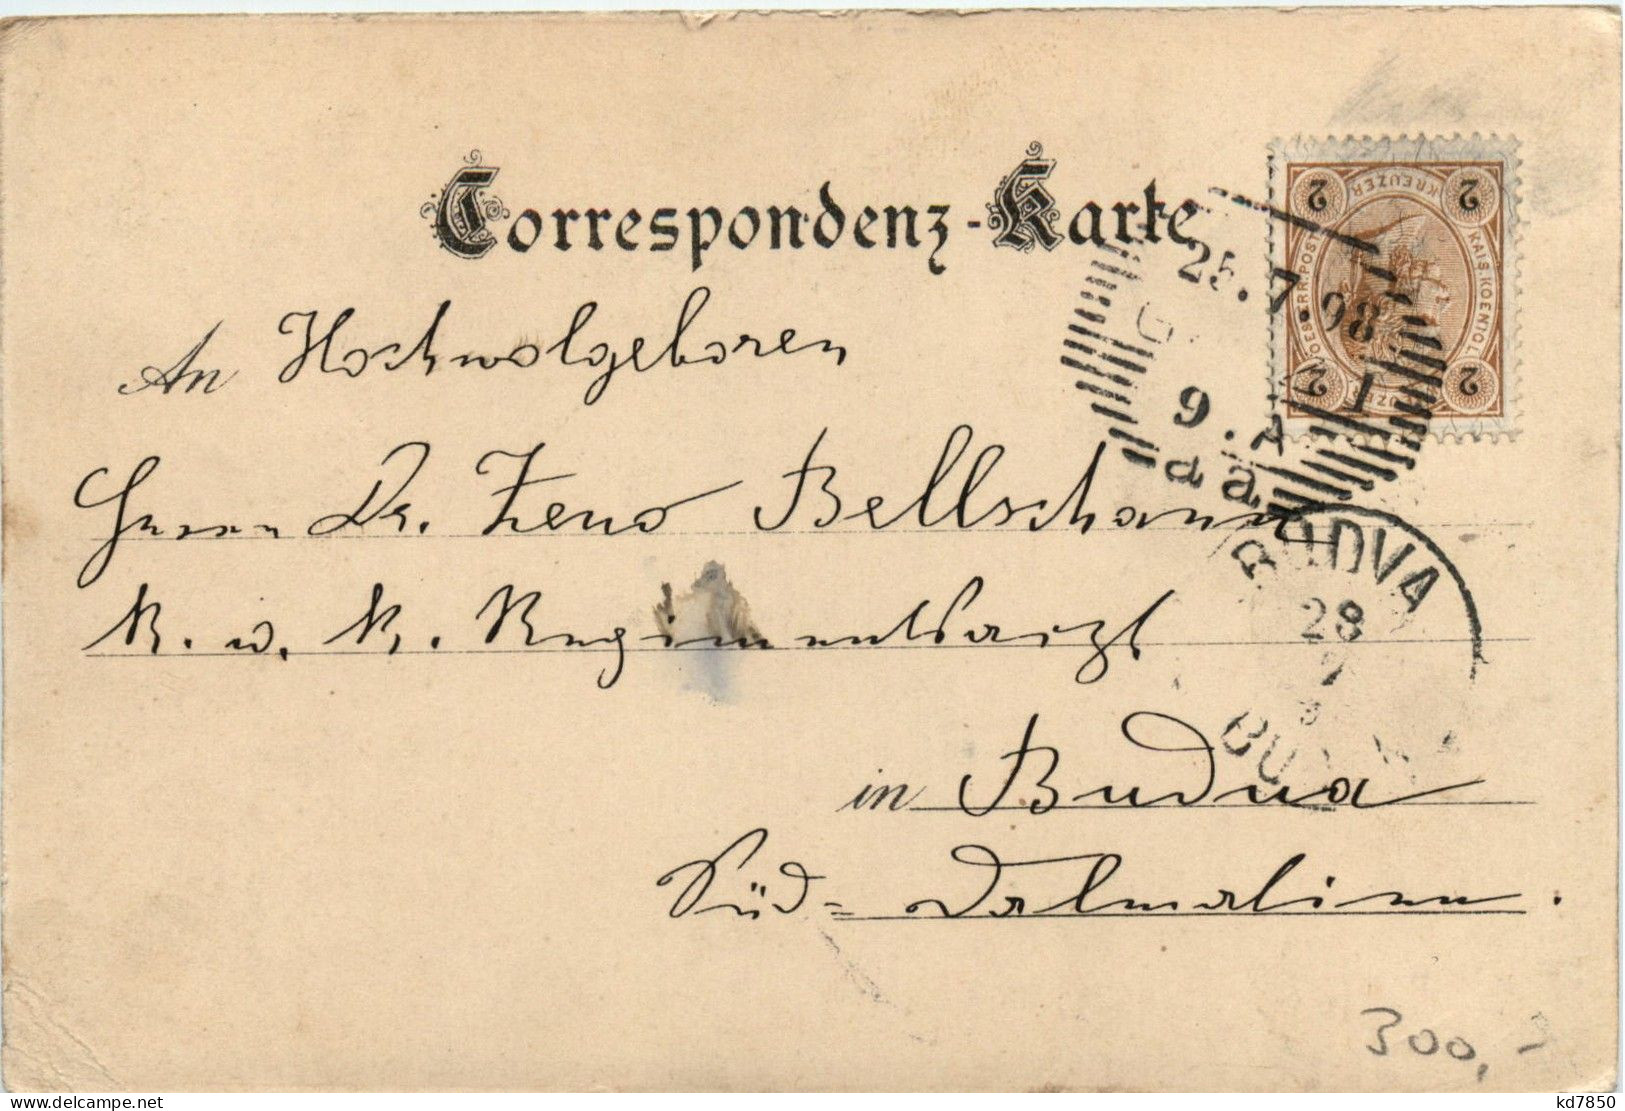 Correspondenz-Karte
2 KREUZER 2
KAIS. KOENIGL.
OESTERR. POST
2 2
25.7.98
9.
a a
An Hochwolgeboren
Herrn Dr. Zeno Bellschann
K. u. K. Regimentsarzt
BUDVA
28
7
BUDUA
in Budua
Süd-Dalmatien.
300,-
delcampe.net
kd7850